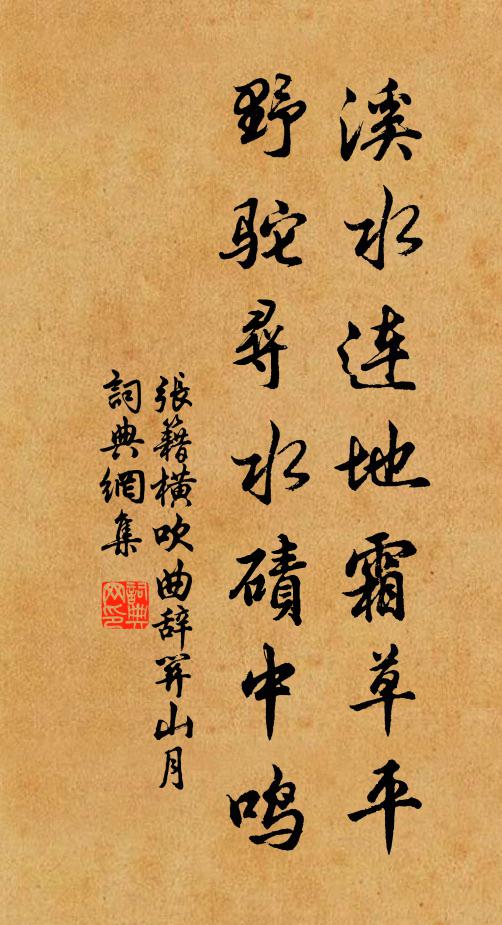 溪水连地霜草平
野驼寻水碛中鸣
張籍橫吹曲辞关山月
詞典網集
詞典网印